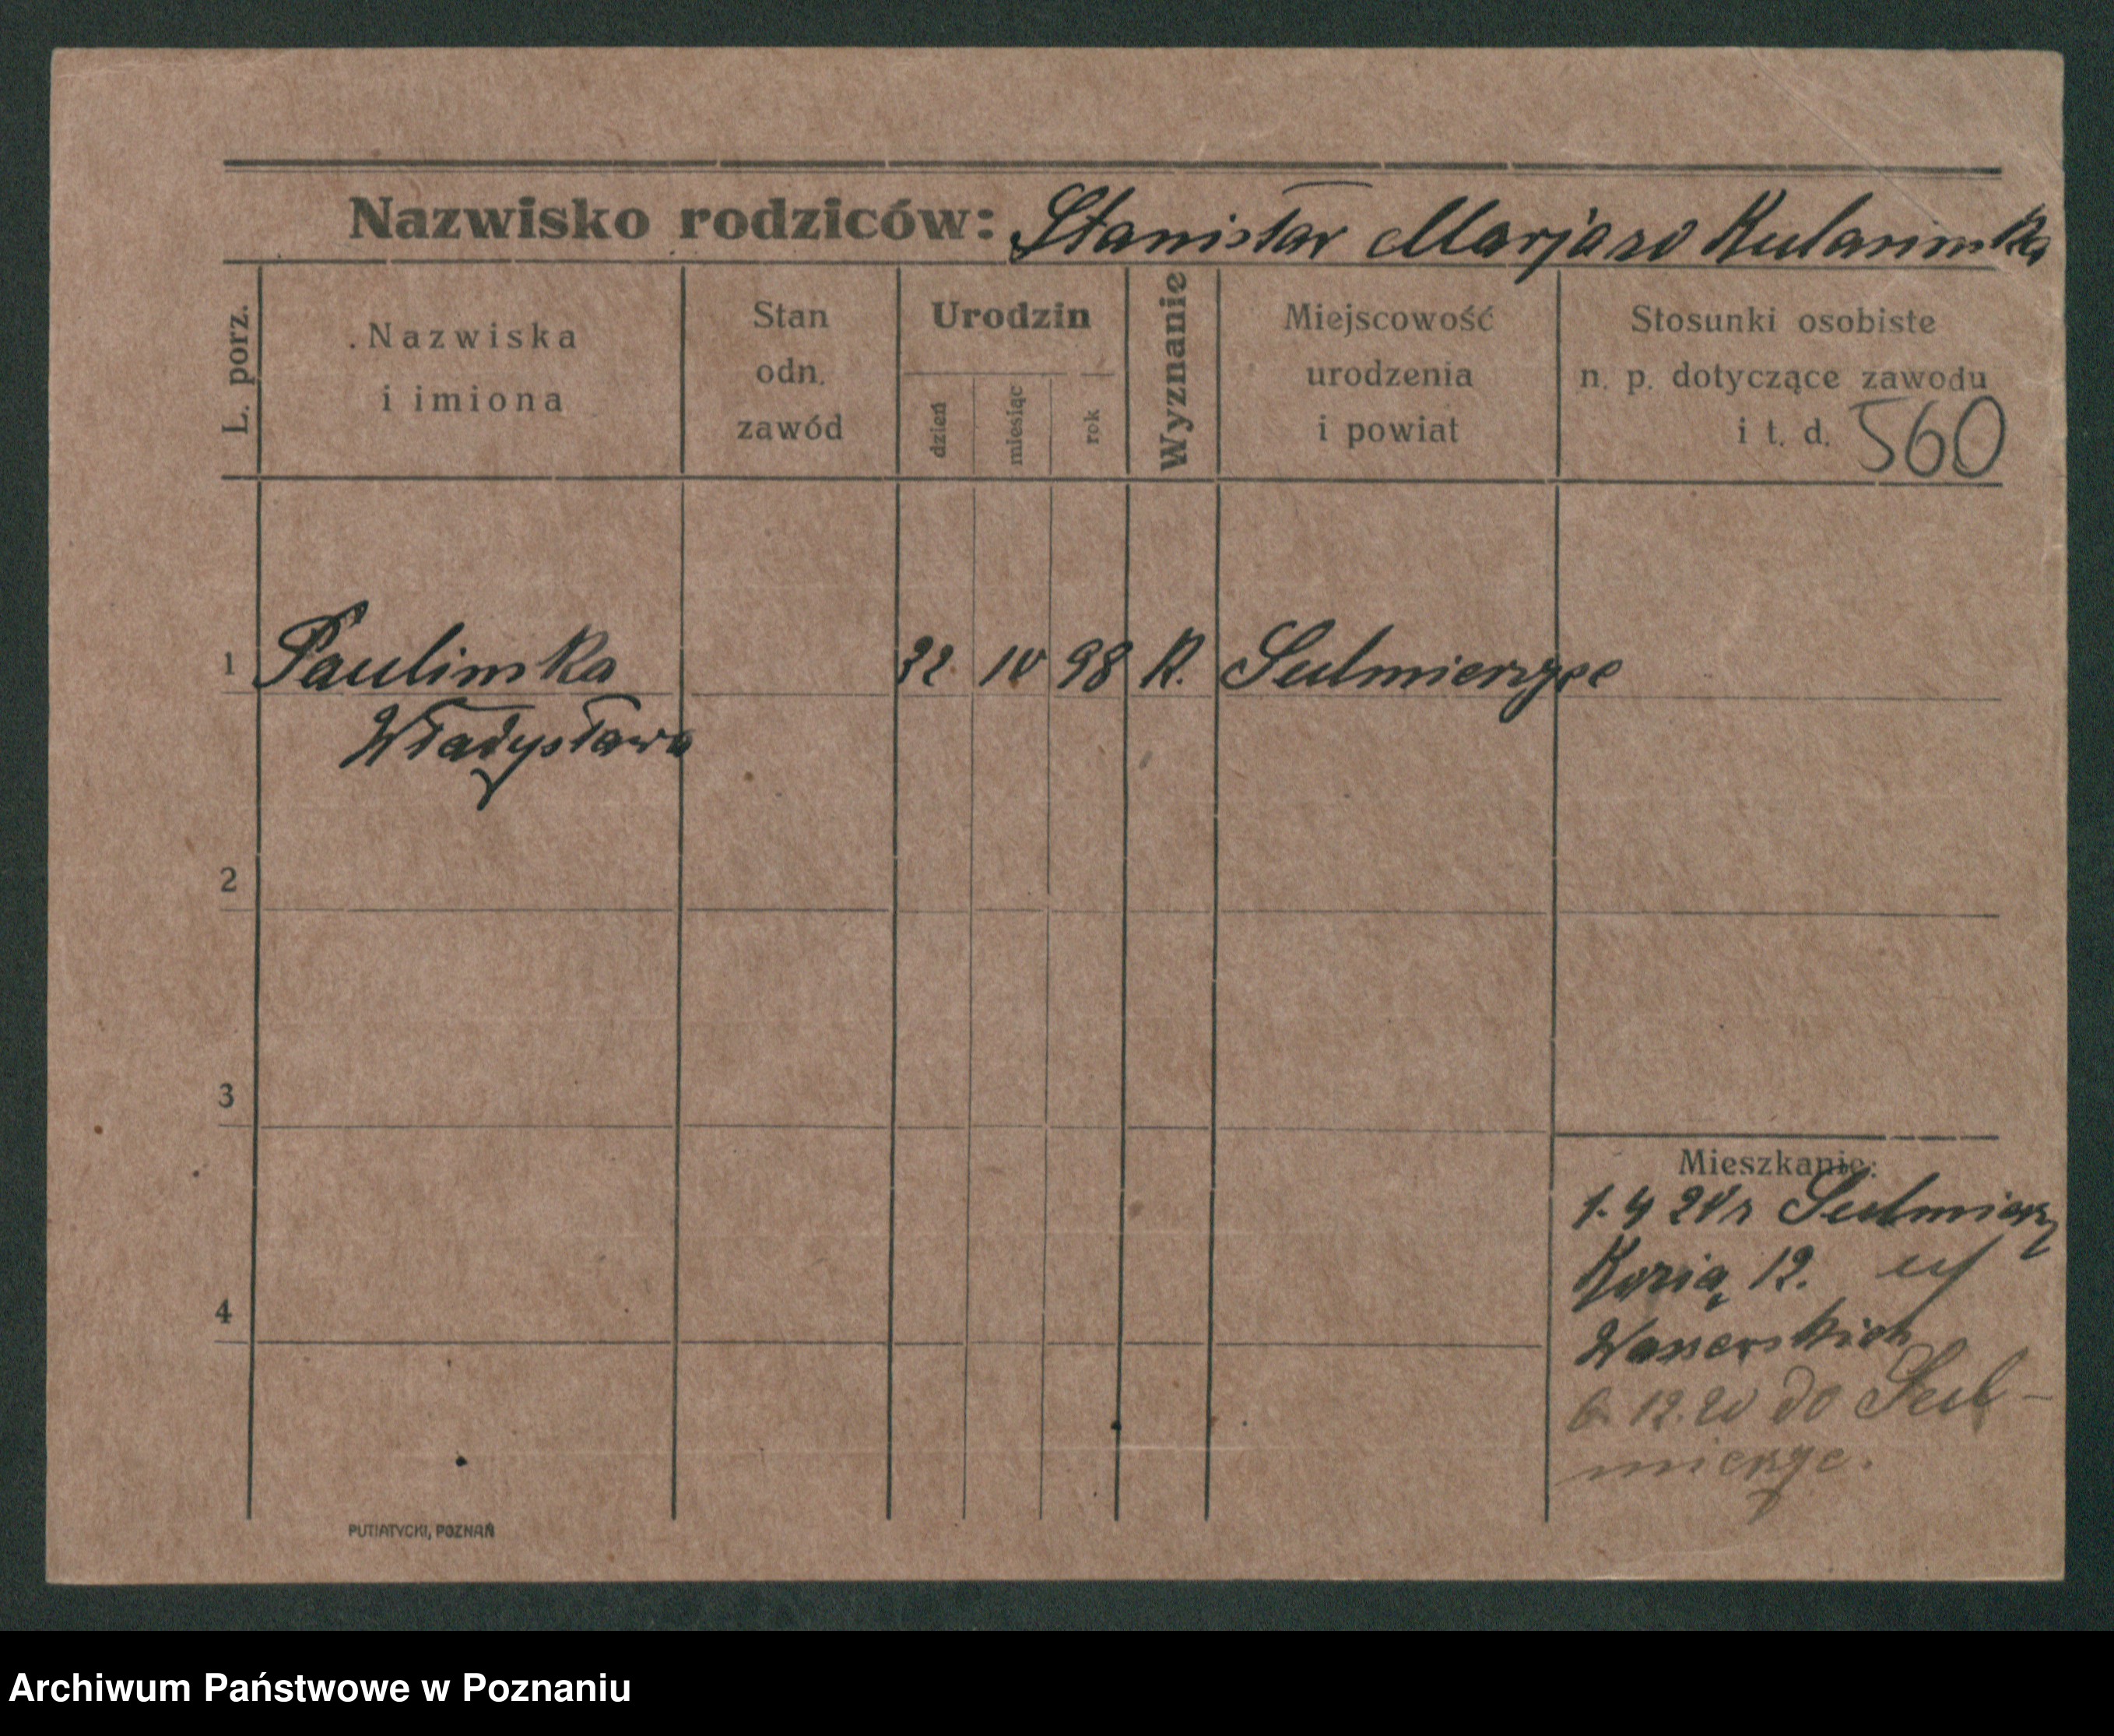 Nazwisko rodziców: Stanisław Marjano
L. porz.
Nazwiska
i imiona
Stan
odn.
zawód
Urodzin
dzień
miesiąc
rok
Wyznanie
Miejscowość
urodzenia
i powiat
Stosunki osobiste
n. p. dotyczące zawodu
i t. d. 560
1 Paulinska 22 IV 98 R. Sulmierzyce
Władysława
2
3
4
Mieszkanie:
1. 4 24 r Sulmierz
12.
6. 12. 20 do Sul-
mierzyc.
PUTIATYCKI, POZNAŃ
Archiwum Państwowe w Poznaniu